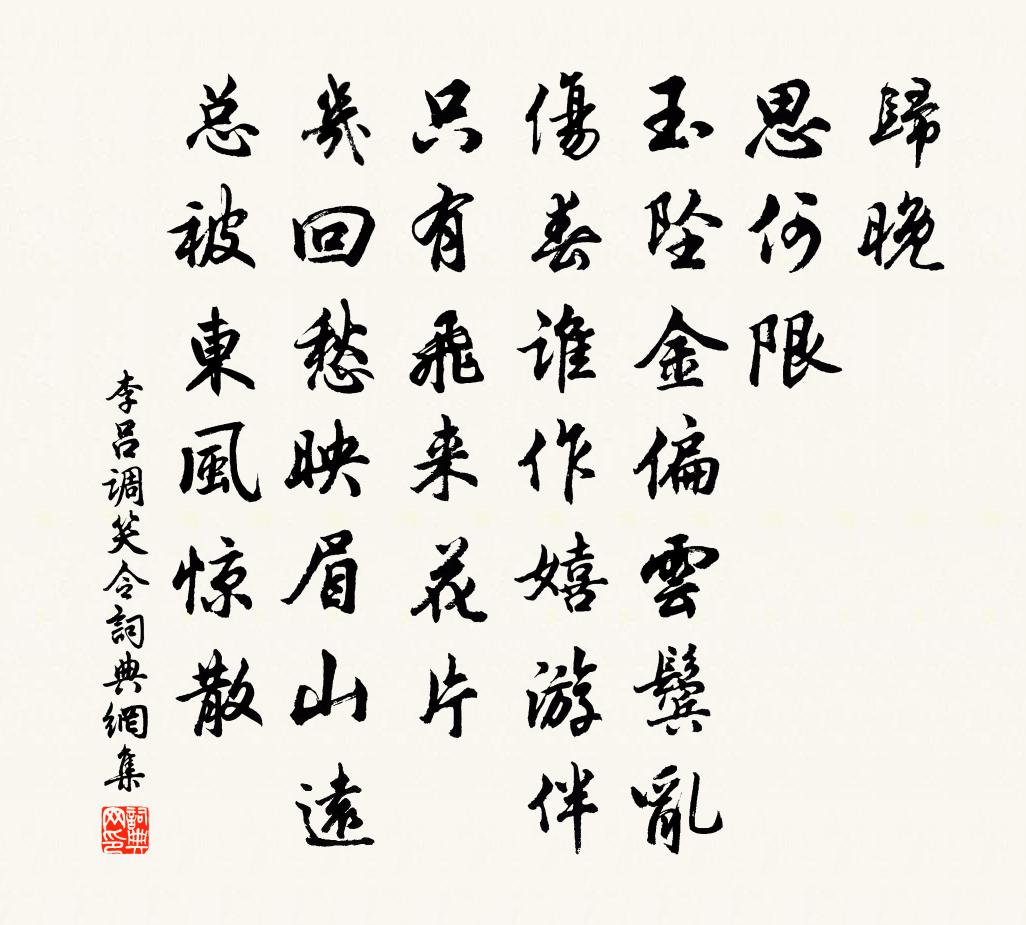 歸晚
思何限
玉坠金偏雲鬓亂
傷春谁作嬉游伴
只有飛来花片
幾回愁映眉山遠
总被東風惊散
李吕调笑令詞典網集
詞典网印